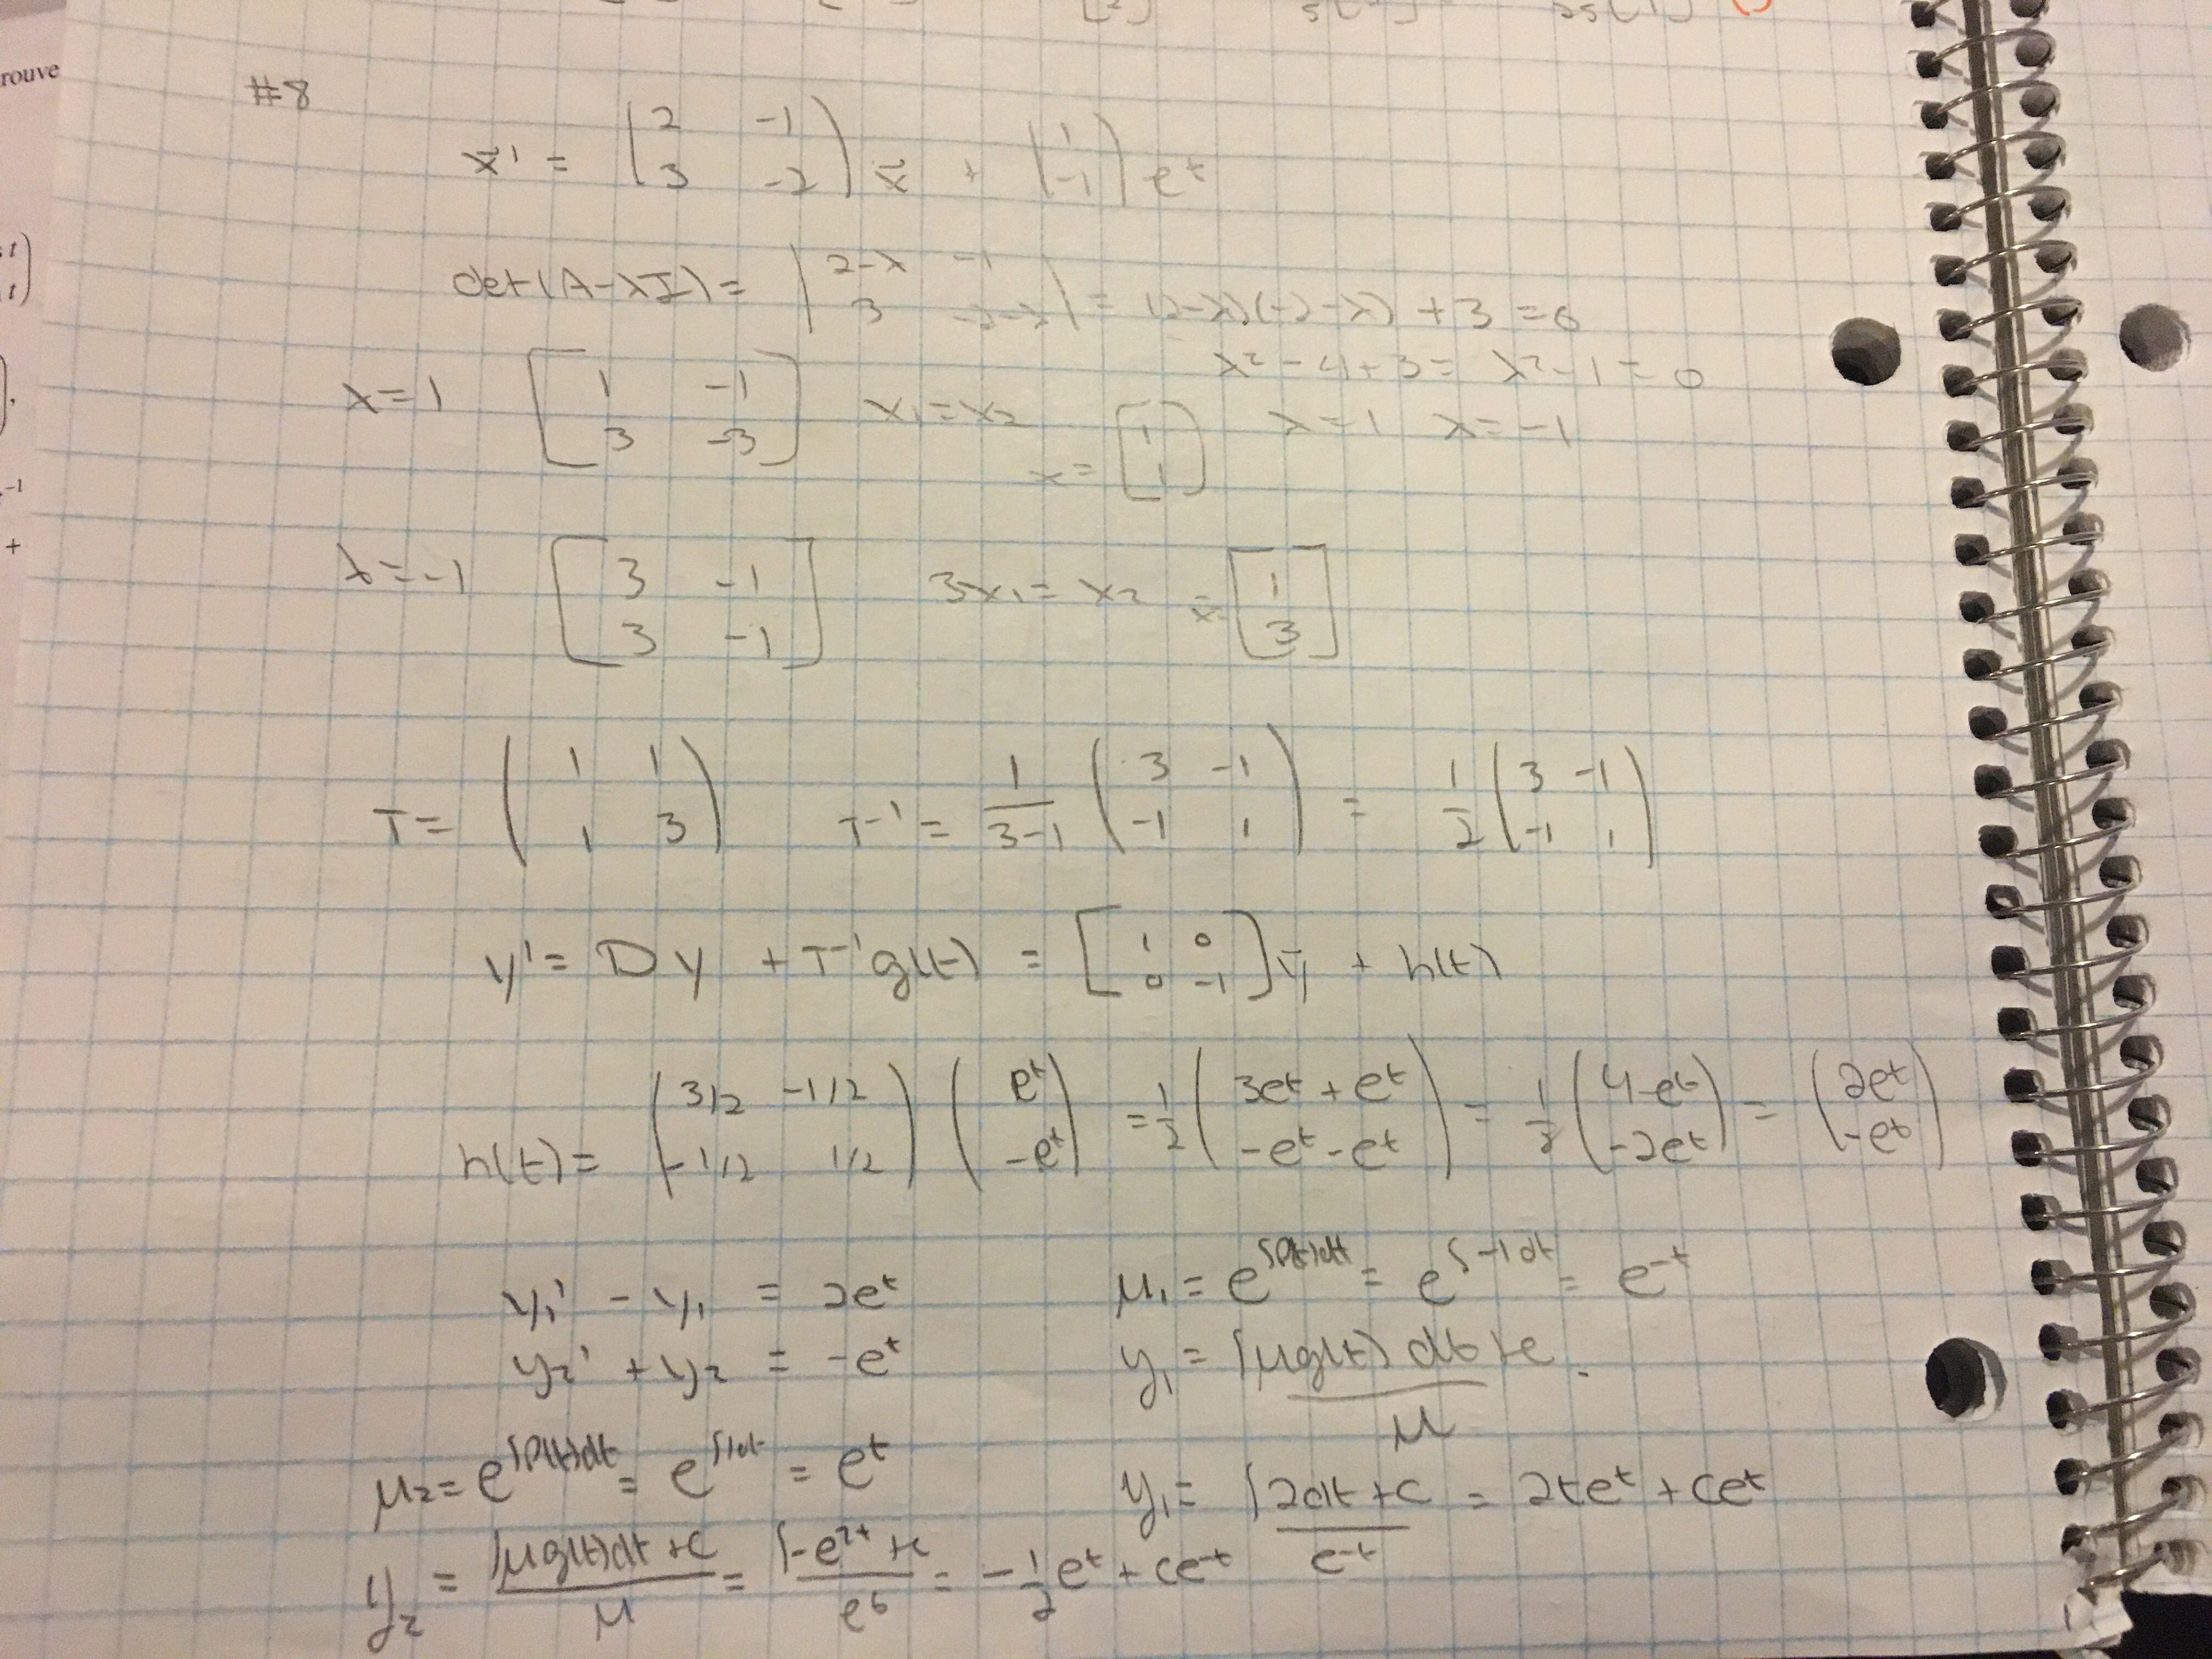 rouve
#8
x̄' = (2 -1; 3 -2) x̄ + (1; -1) e^t
det(A-λI) = |2-λ -1; 3 -2-λ| = (2-λ)(-2-λ) + 3 = 0
λ² - 4 + 3 = λ² - 1 = 0
λ=1 [1 -1; 3 -3] x₁=x₂ x = [1; 1] λ=1 λ=-1
λ=-1 [3 -1; 3 -1] 3x₁ = x₂ x= [1; 3]
T = (1 1; 1 3) T⁻¹ = 1/(3-1) (3 -1; -1 1) = 1/2 (3 -1; -1 1)
y' = Dy + T⁻¹g(t) = [1 0; 0 -1] ȳ + h(t)
h(t) = (3/2 -1/2; -1/2 1/2) (e^t; -e^t) = 1/2 (3e^t + e^t; -e^t - e^t) = 1/2 (4e^t; -2e^t) = (2e^t; -e^t)
y₁' - y₁ = 2e^t
y₂' + y₂ = -e^t
μ₂ = e^∫P(t)dt = e^∫1dt = e^t
y₂ = (∫μg(t)dt + c)/μ = (∫-e^2t + c)/e^t = -1/2 e^t + ce^-t
μ₁ = e^∫P(t)dt = e^∫-1dt = e^-t
y₁ = (∫μg(t) dt + c)/μ
y₁ = (∫2dt + c)/e^-t = 2te^t + ce^t